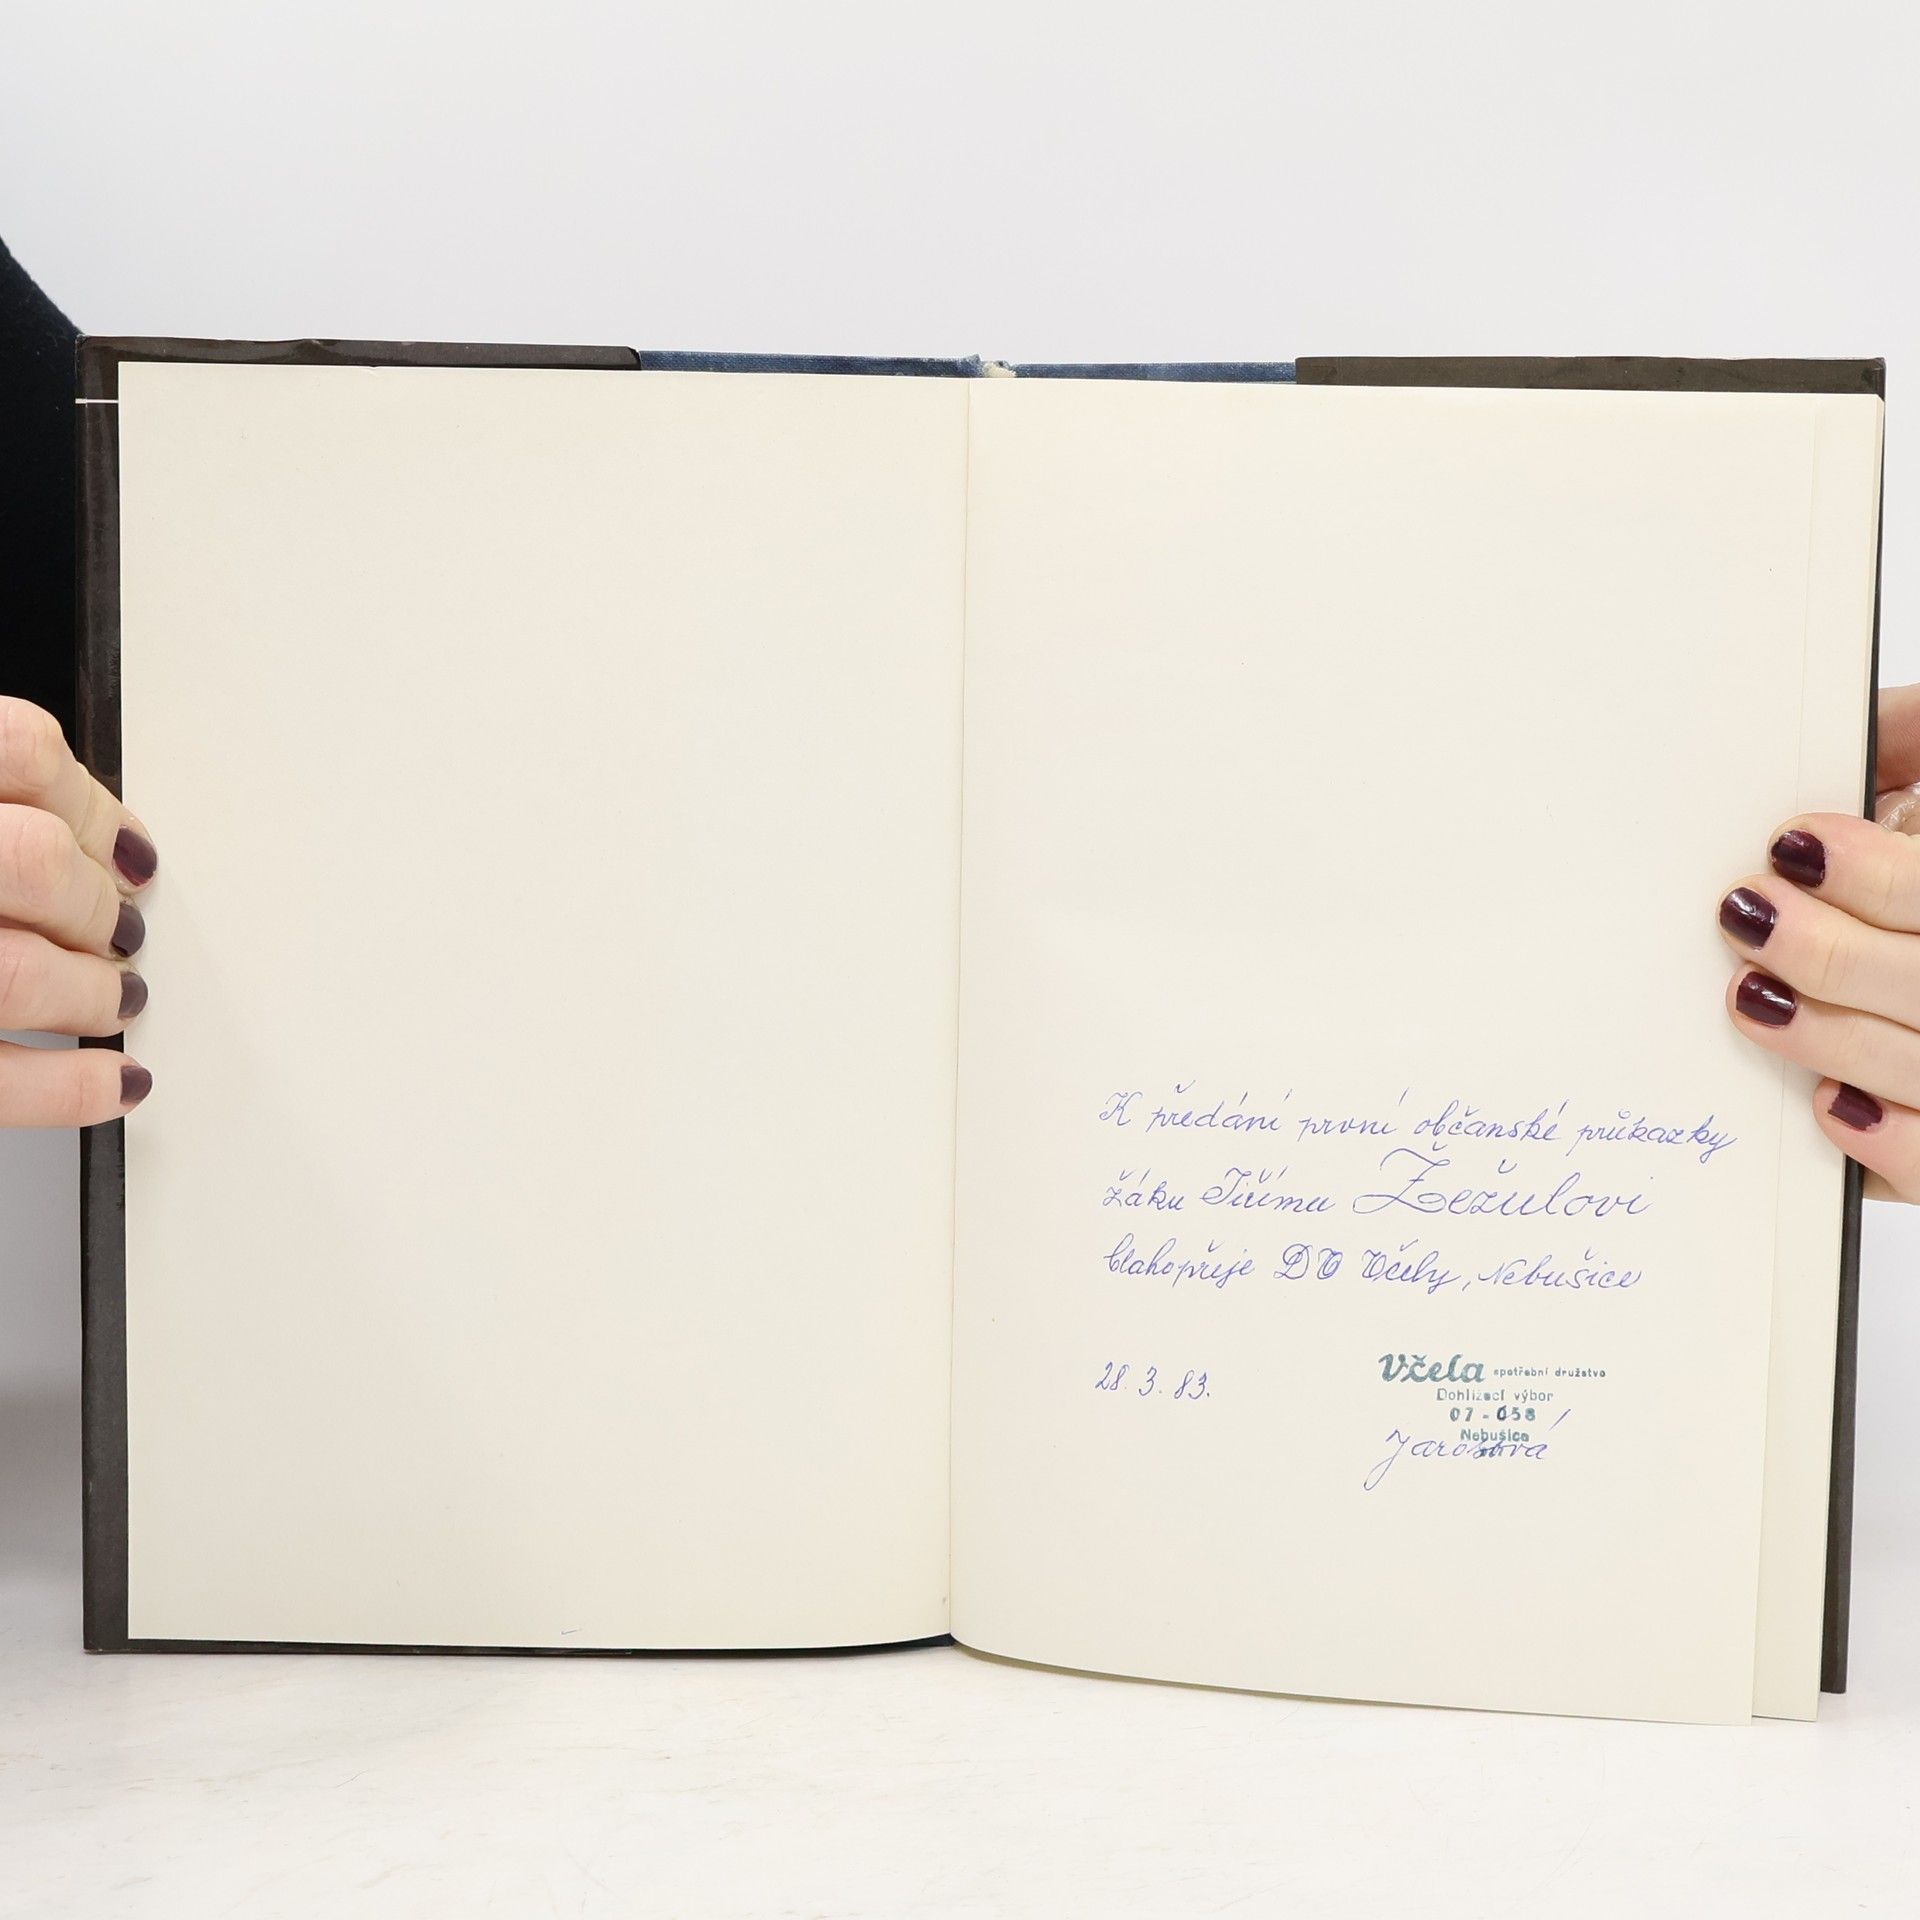 K předání první občanské průkazky
žáku Jiřímu Žežulovi
blahopřeje DV Včely, Nebušice
28. 3. 83.
Včela spotřební družstvo
Dohlížecí výbor
07 - 058
Nebušice
Jarošová